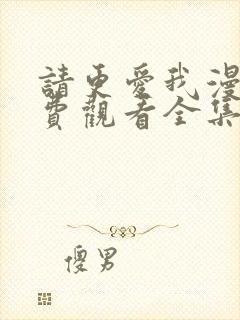 請更愛我漫
費觀看全集
傻男